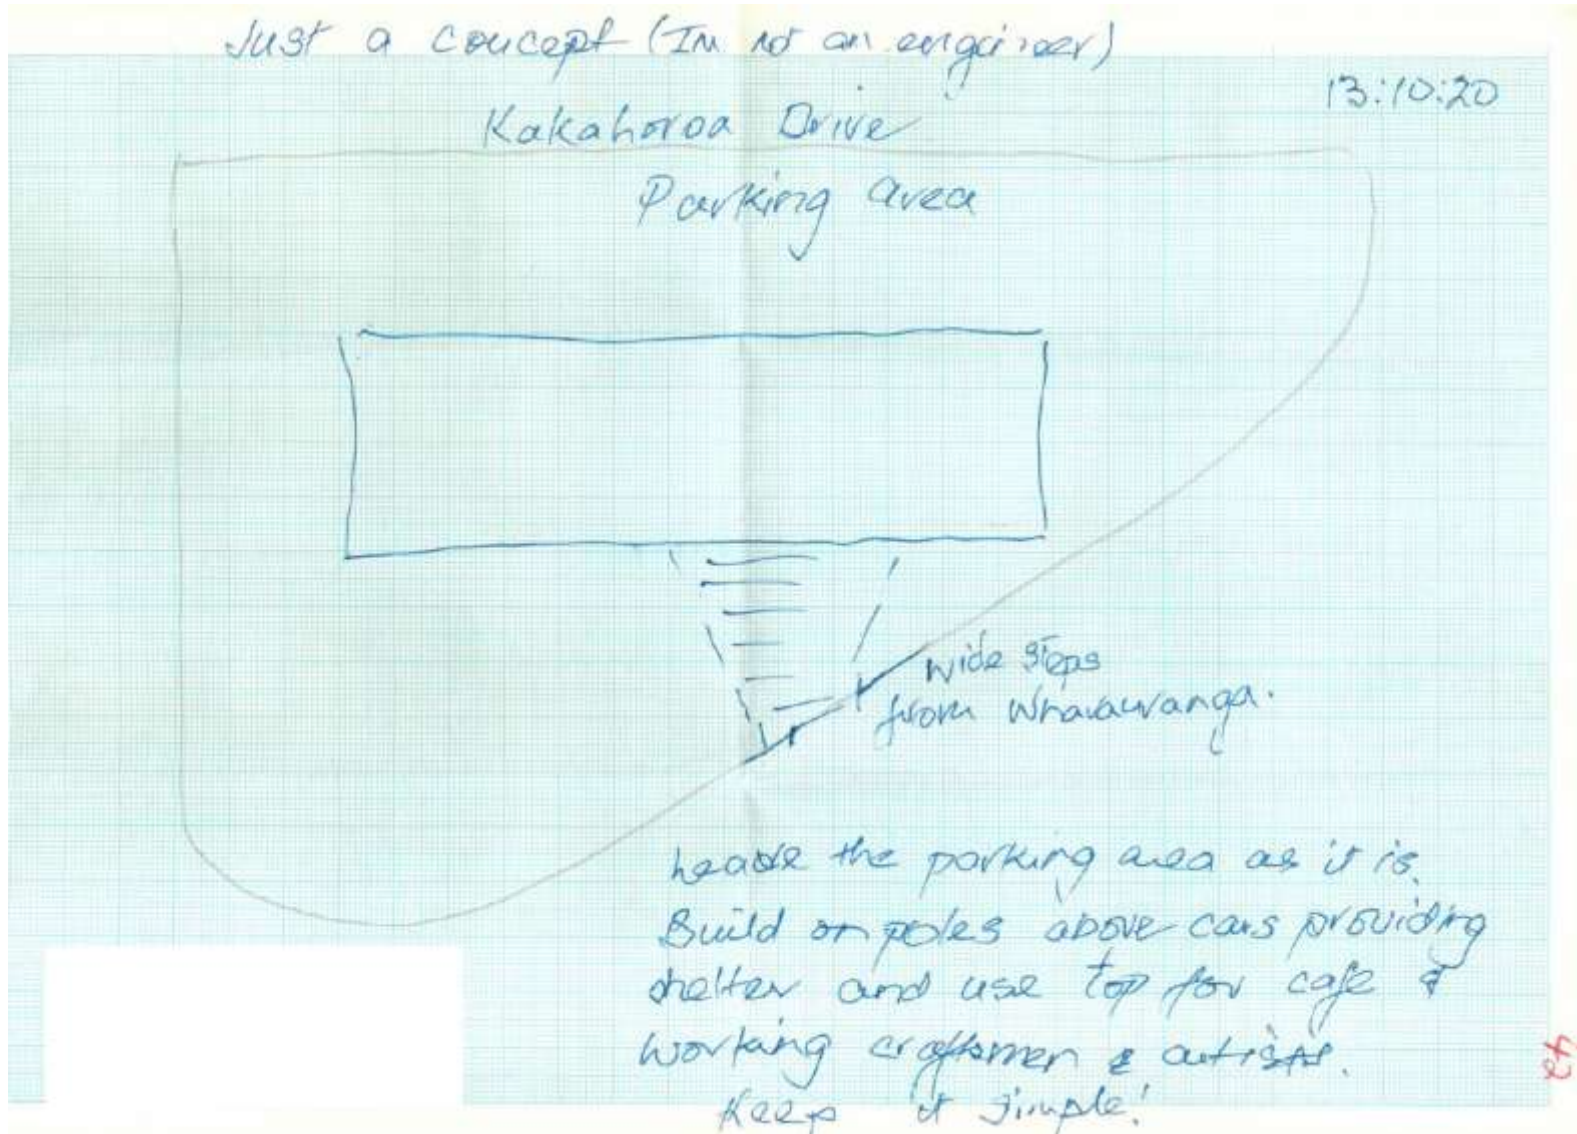 Just a concept (Im not an engineer)
13:10:20
Kakahoroa Drive
Parking area
wide steps
from Wharauranga.
Leave the parking area as it is.
Build on poles above cars providing
shelter and use top for cafe &
working craftsmen & artists.
Keep it simple!
43